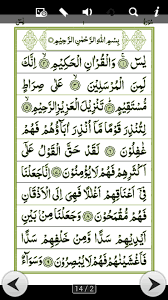 بِسْمِ اللّٰهِ الرَّحْمٰنِ الرَّحِيْمِ
يٰسٓ ۝ وَالْقُرْاٰنِ الْحَكِيْمِ ۝ اِنَّكَ
لَمِنَ الْمُرْسَلِيْنَ ۝ عَلٰى صِرَاطٍ
مُّسْتَقِيْمٍ ۝ تَنْزِيْلَ الْعَزِيْزِ الرَّحِيْمِ ۝
لِتُنْذِرَ قَوْمًا مَّآ اُنْذِرَ اٰبَآؤُهُمْ فَهُمْ
غٰفِلُوْنَ ۝ لَقَدْ حَقَّ الْقَوْلُ عَلٰٓى
اَكْثَرِهِمْ فَهُمْ لَا يُؤْمِنُوْنَ ۝ اِنَّا جَعَلْنَا
فِيْٓ اَعْنَاقِهِمْ اَغْلٰلًا فَهِيَ اِلَى الْاَذْقَانِ
فَهُمْ مُّقْمَحُوْنَ ۝ وَجَعَلْنَا مِنْۢ بَيْنِ
اَيْدِيْهِمْ سَدًّا وَّمِنْ خَلْفِهِمْ سَدًّا
فَاَغْشَيْنٰهُمْ فَهُمْ لَا يُبْصِرُوْنَ ۝ وَسَوَآءٌ
14 / 2